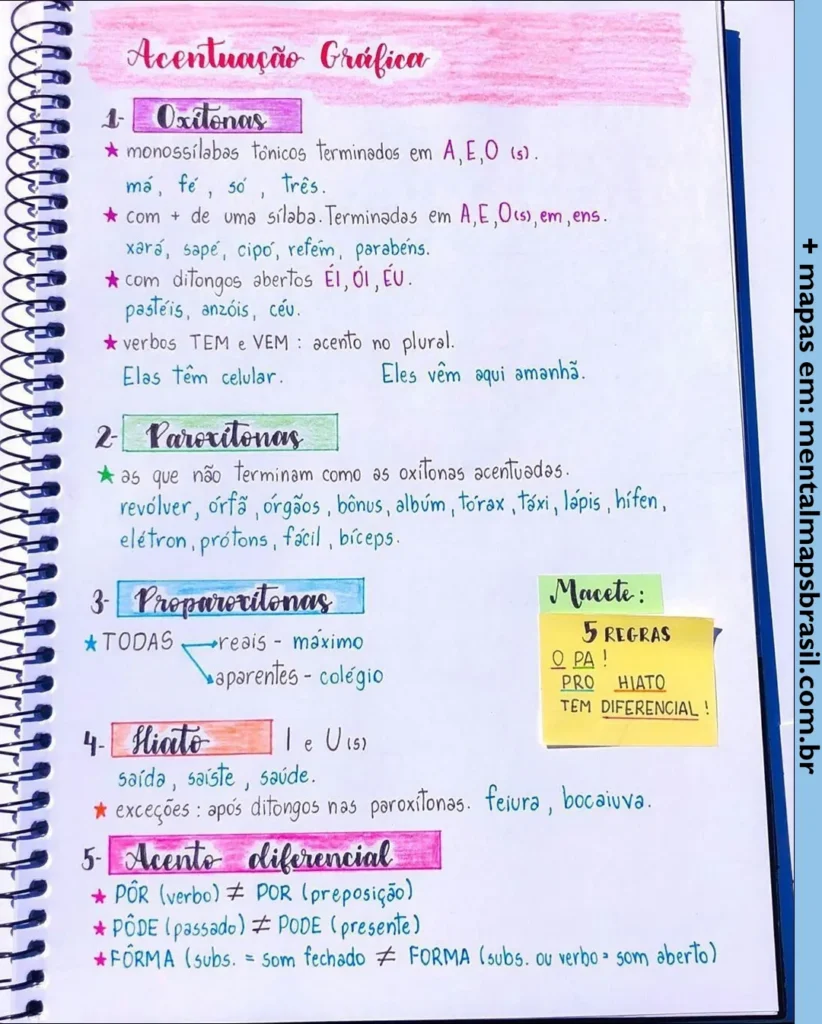 Acentuação Gráfica
1- Oxítonas
★ monossílabas tônicos terminados em A, E, O (s).
má, fé, só, três.
★ com + de uma sílaba. Terminadas em A, E, O(s), em, ens.
xará, sapé, cipó, refém, parabéns.
★ com ditongos abertos ÉI, ÓI, ÉU.
pastéis, anzóis, céu.
★ verbos TEM e VEM : acento no plural.
Elas têm celular. Eles vêm aqui amanhã.
2- Paroxítonas
★ as que não terminam como as oxítonas acentuadas.
revólver, órfã, órgãos, bônus, albúm, tórax, táxi, lápis, hífen,
elétron, prótons, fácil, bíceps.
3- Proparoxítonas
★ TODAS → reais - máximo
↘ aparentes - colégio
Macete:
5 REGRAS
O PA !
PRO HIATO
TEM DIFERENCIAL !
4- Hiato I e U (s)
saída, saíste, saúde.
★ exceções : após ditongos nas paroxítonas. feiura, bocaiuva.
5- Acento diferencial
★ PÔR (verbo) ≠ POR (preposição)
★ PÔDE (passado) ≠ PODE (presente)
★ FÔRMA (subs. = som fechado ≠ FORMA (subs. ou verbo = som aberto)
+ mapas em: mentalmapsbrasil.com.br